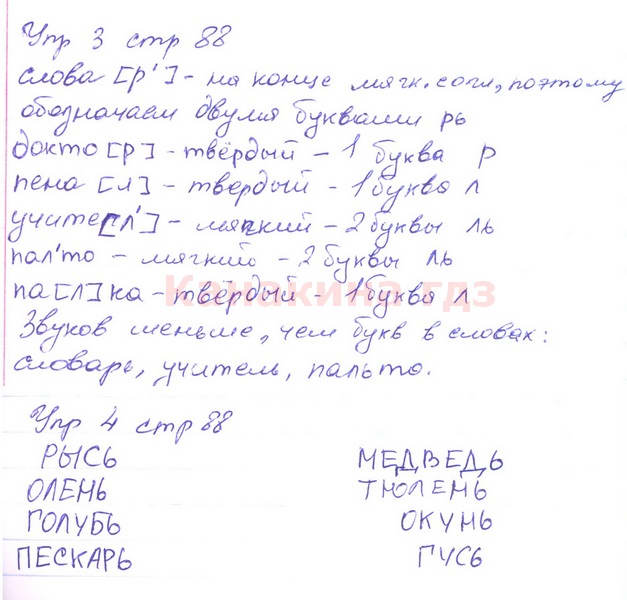 Упр 3 стр 88
слова [р'] - на конце мягк. согл, поэтому
обозначаем двумя буквами рь
докто [р] - твёрдый - 1 буква р
пена [л] - твердый - 1 буква л
учите [л'] - мягкий - 2 буквы ль
пал'то - мягкий - 2 буквы ль
па [л] ка - твёрдый - 1 буква л
Канакина гдз
Звуков меньше, чем букв в словах:
словарь, учитель, пальто.
Упр 4 стр 88
РЫСЬ МЕДВЕДЬ
ОЛЕНЬ ТЮЛЕНЬ
ГОЛУБЬ ОКУНЬ
ПЕСКАРЬ ГУСЬ